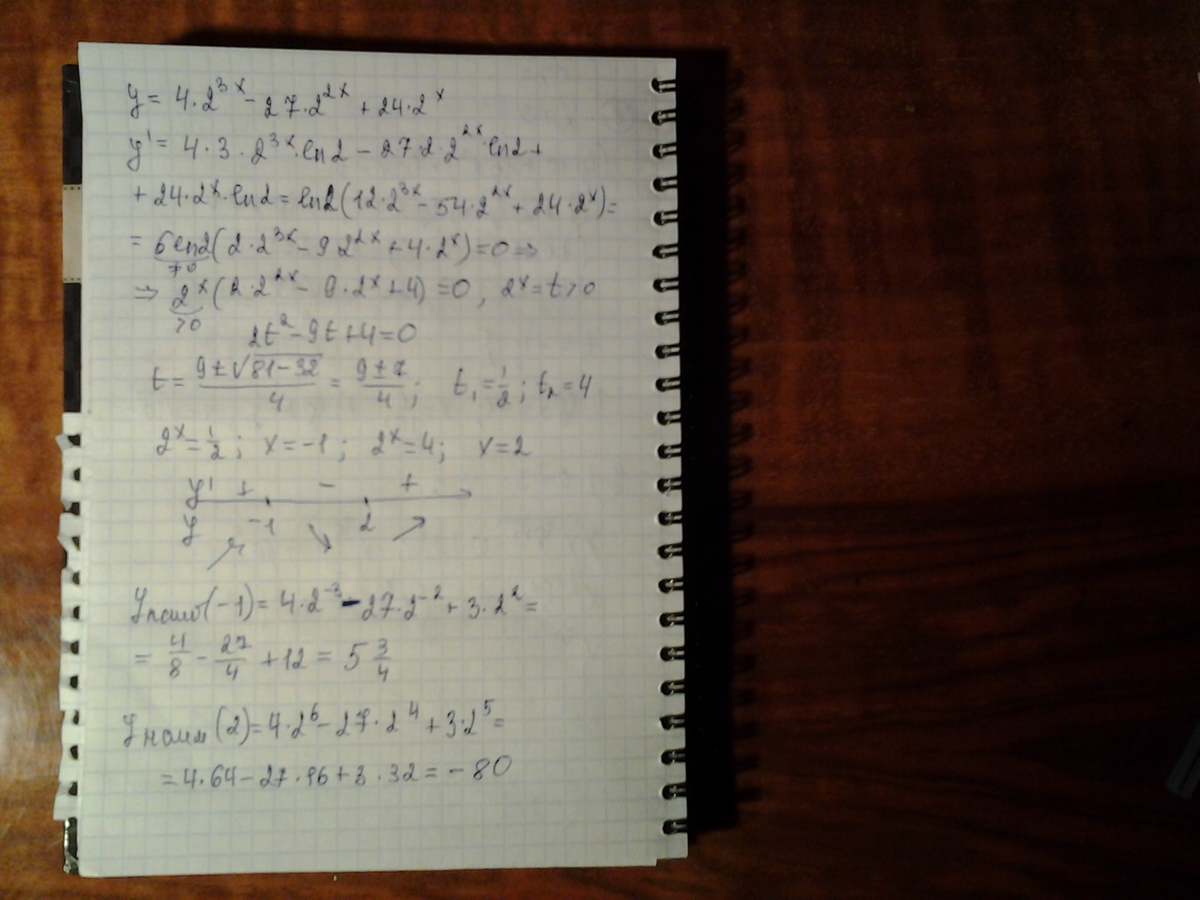 y = 4·2^3x - 27·2^2x + 24·2^x
y' = 4·3·2^3x·ln2 - 27·2·2^2x·ln2 +
+ 24·2^x·ln2 = ln2(12·2^3x - 54·2^2x + 24·2^x) =
= 6ln2(2·2^3x - 9 2^2x + 4·2^x) = 0 ⇒
≠0
⇒ 2^x(2·2^2x - 9·2^x + 4) = 0, 2^x = t > 0
>0
2t² - 9t + 4 = 0
t = (9±√(81-32))/4 = (9±7)/4; t₁ = 1/2; t₂ = 4
2^x = 1/2; x = -1; 2^x = 4; x = 2
y' + - +
y -1 ↘ 2 ↗
↗
y наиб(-1) = 4·2^-3 - 27·2^-2 + 3·2^2 =
= 4/8 - 27/4 + 12 = 5 3/4
y наим(2) = 4·2^6 - 27·2^4 + 3·2^5 =
= 4·64 - 27·16 + 3·32 = -80